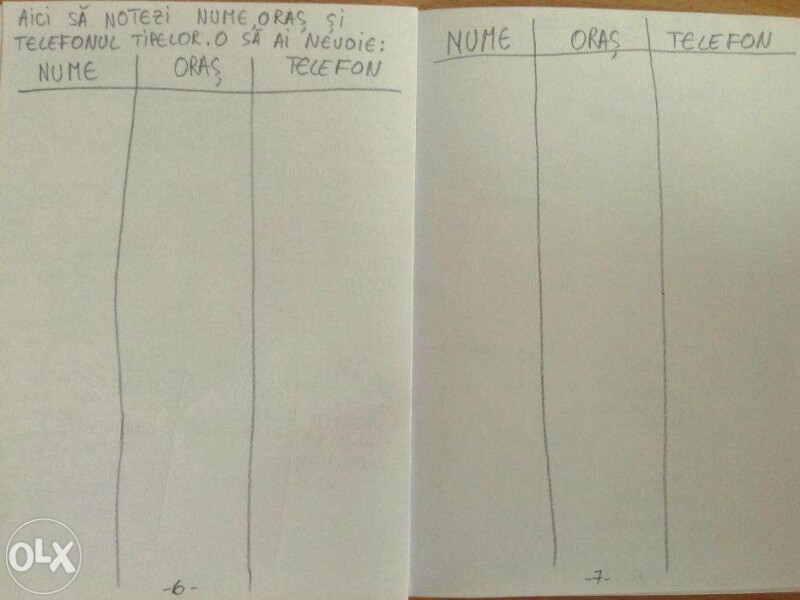 AICI SĂ NOTEZI NUME, ORAȘ, ȘI
TELEFONUL TIPELOR. O SĂ AI NEVOIE:
NUME ORAȘ TELEFON
-6-
NUME ORAȘ TELEFON
-7-
OLX